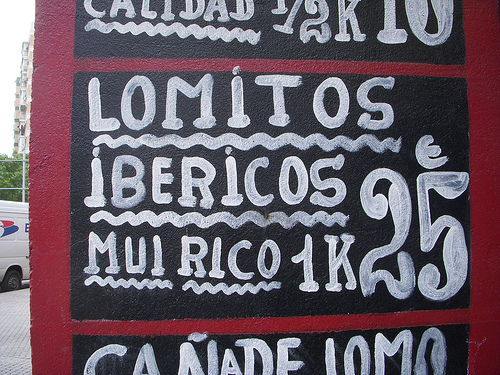 CALIDAD 1/2 K 10
LOMITOS
IBERICOS €
MUI RICO 1K 25
CAÑADE LOMO